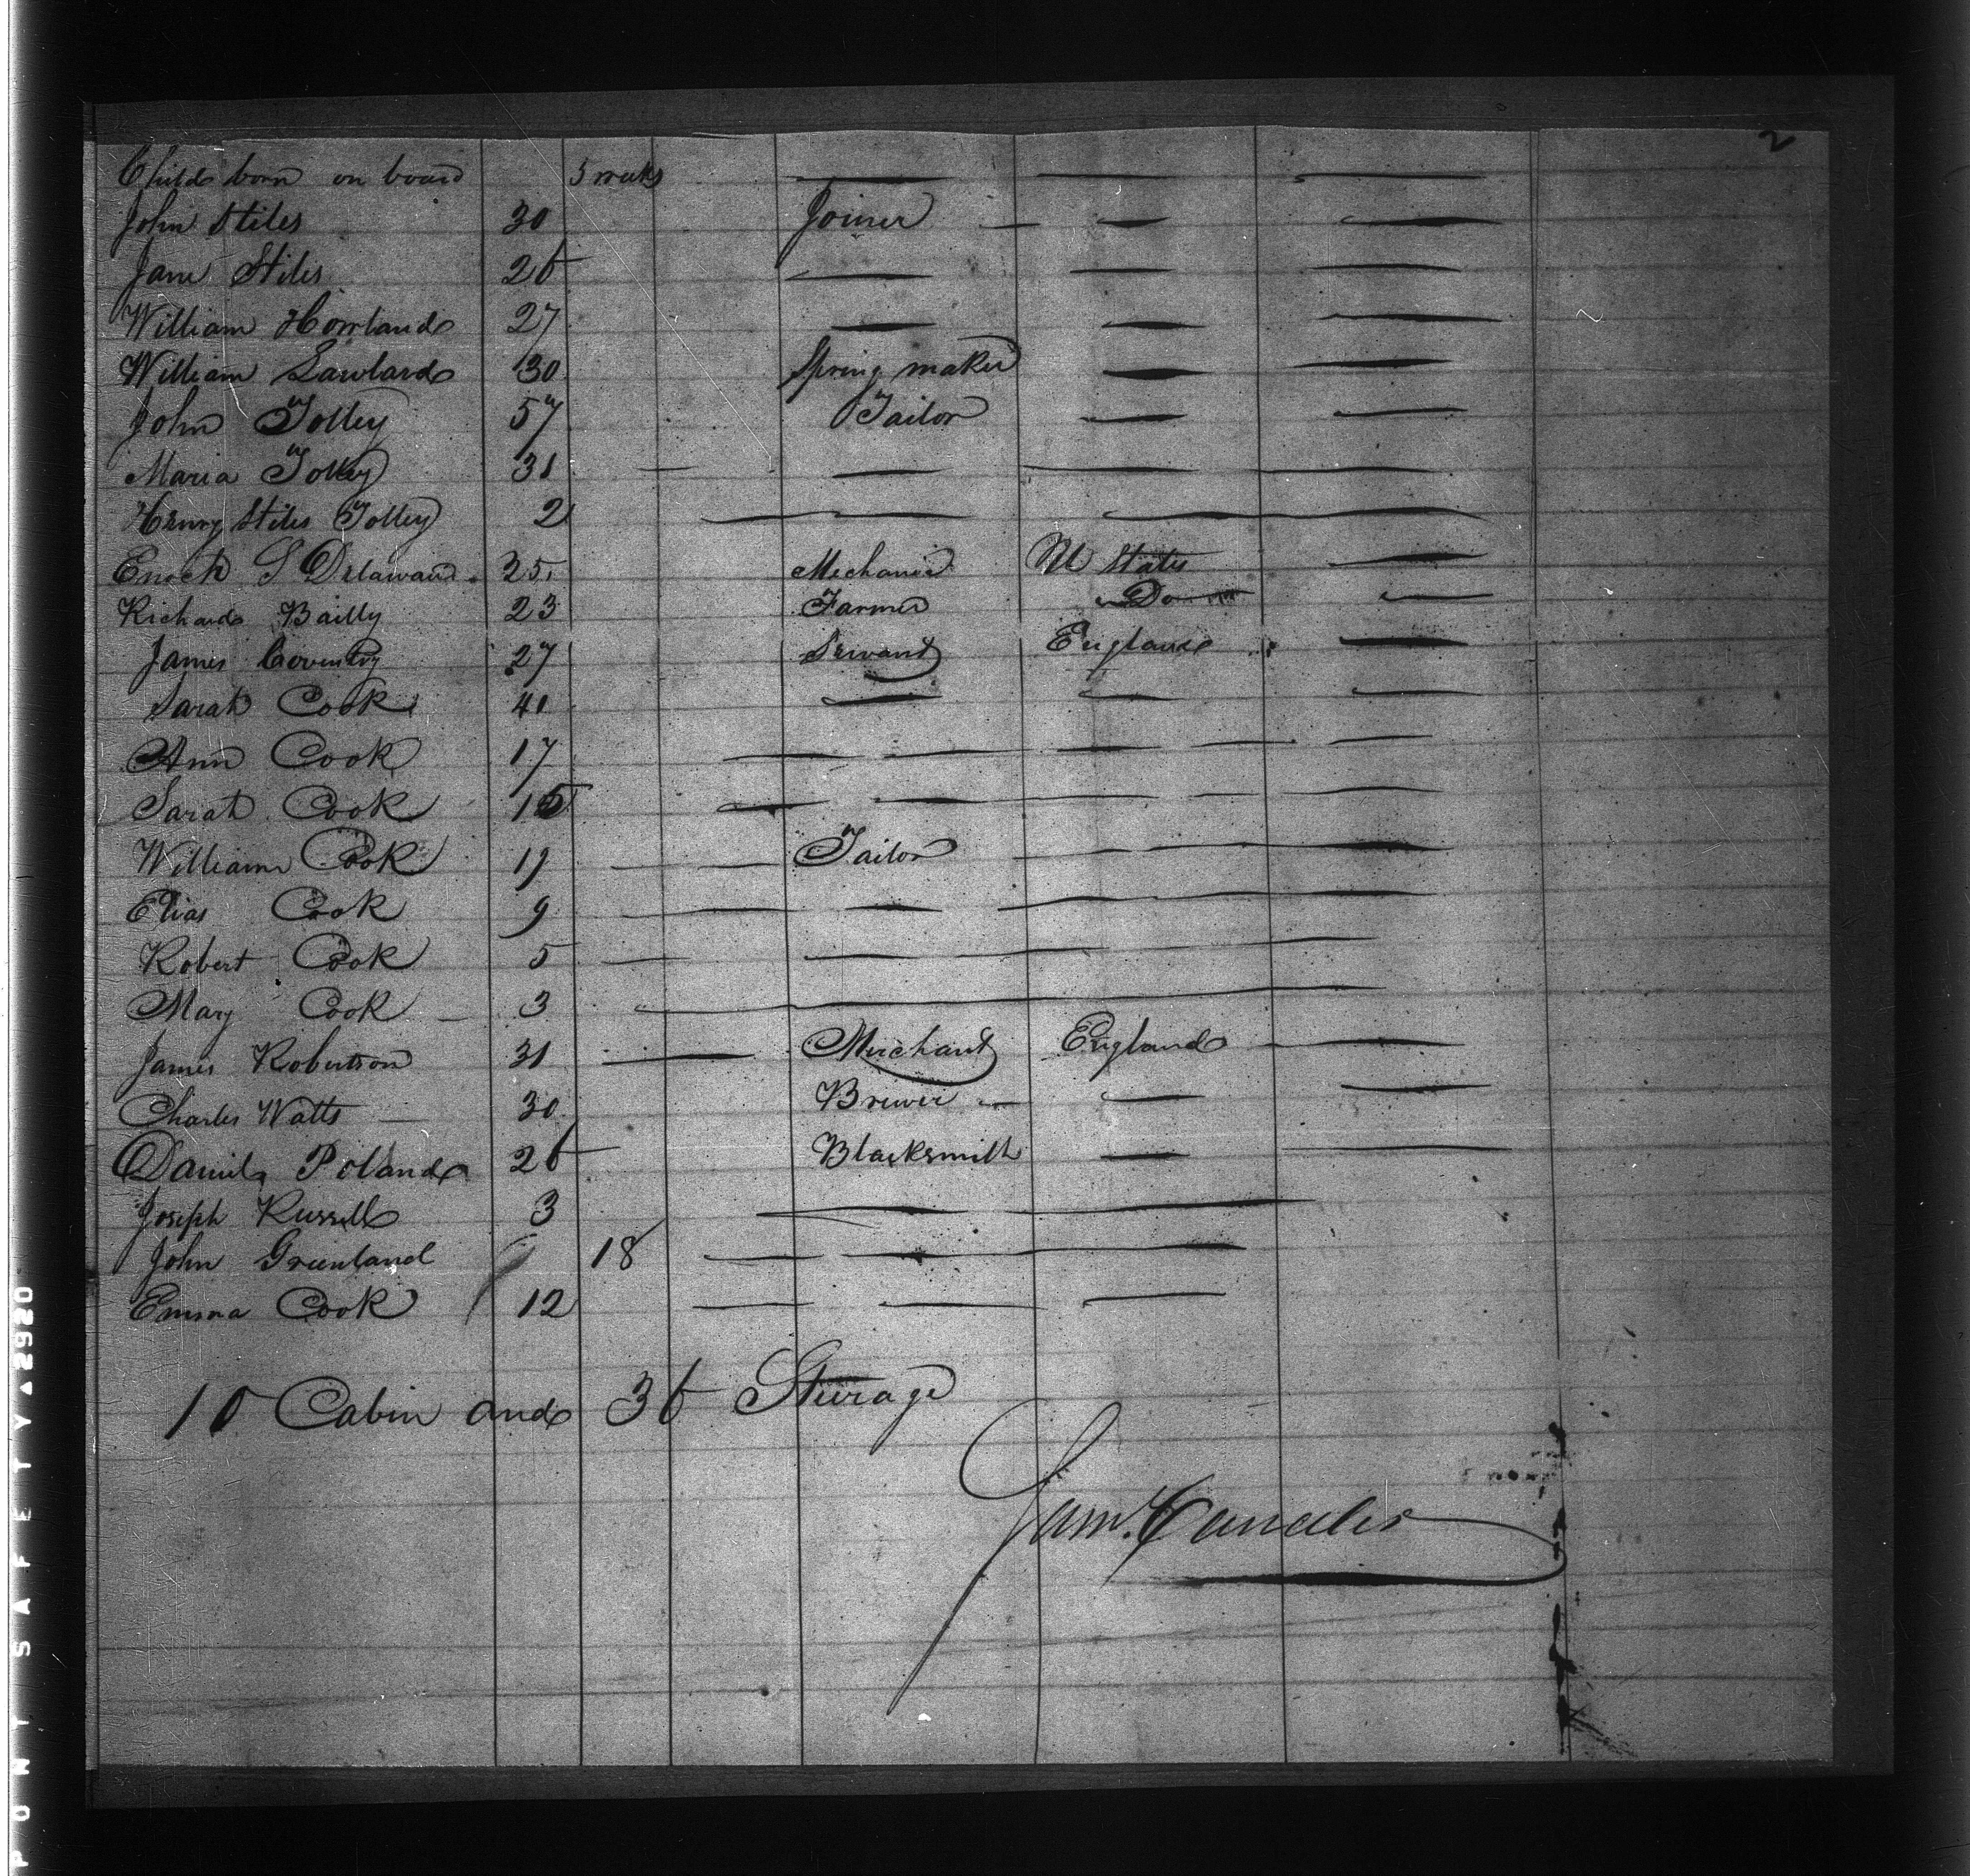 2
Child born on board 5 weeks
John Stiles 30 Joiner
Jane Stiles 26
William Howland 27
William 30 Spring maker
John Tolley 57 Tailor
Maria Tolley 31
Henry Stiles Tolley 2
Enoch S 25 Mechanic U States
Richard Bailly 23 Farmer Do
James Coventry 27 Servant England
Sarah Cook 41
Ann Cook 17
Sarah Cook 15
William Cook 19 Tailor
Elias Cook 9
Robert Cook 5
Mary Cook 3
James Robertson 31 Merchant England
Charles Watts 30 Brewer
Daniel Poland 26 Blacksmith
Joseph Russell 3
John Greenland 18
Emma Cook 12
10 Cabin and 36 Steerage
PONY SAFETY▲2920